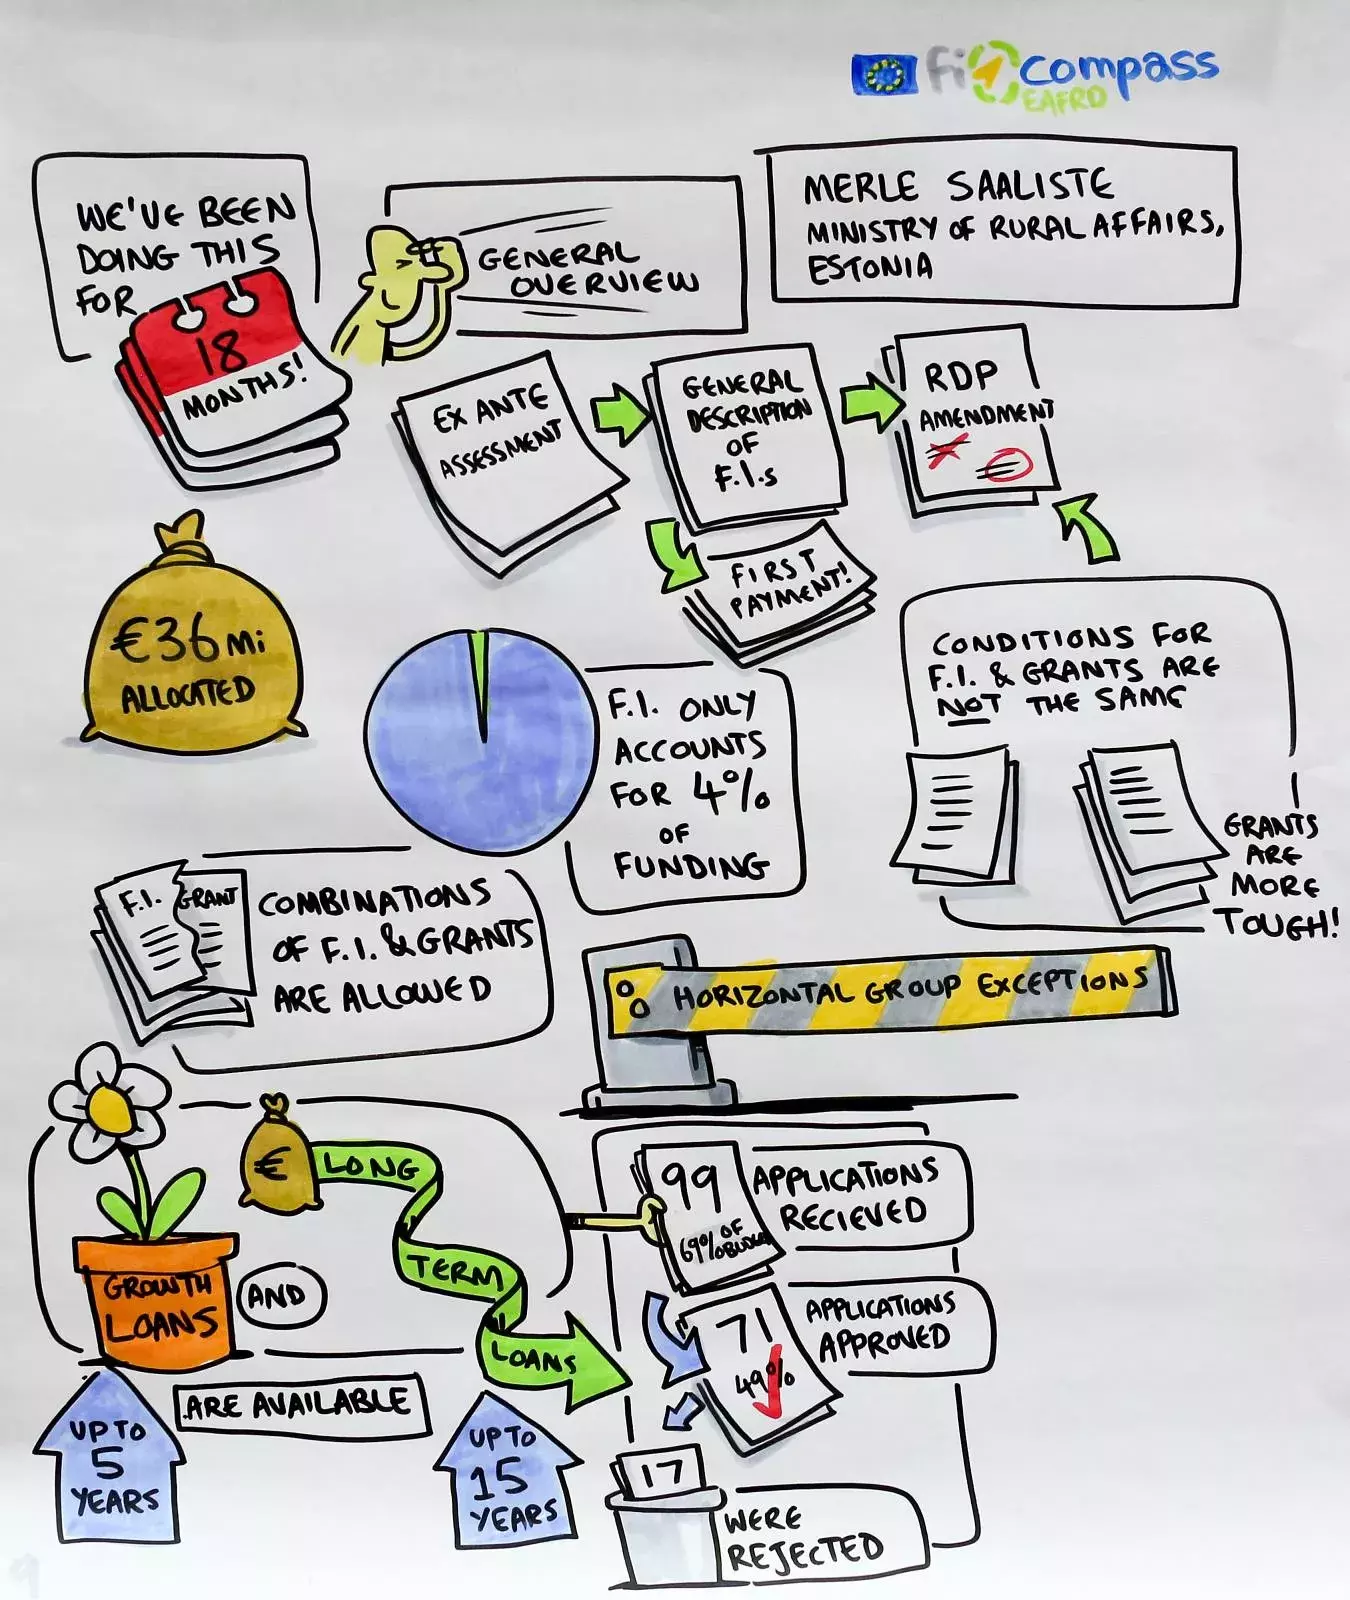 fi compass
EAFRD
WE'VE BEEN
DOING THIS
FOR
18
MONTHS!
GENERAL
OVERVIEW
MERLE SAALISTE
MINISTRY OF RURAL AFFAIRS,
ESTONIA
EX ANTE
ASSESSMENT
GENERAL
DESCRIPTION
OF
F.I.s
RDP
AMENDMENT
FIRST
PAYMENT!
€36Mi
ALLOCATED
F.I. ONLY
ACCOUNTS
FOR 4%
OF
FUNDING
CONDITIONS FOR
F.I. & GRANTS ARE
NOT THE SAME
GRANTS
ARE
MORE
TOUGH!
F.I. GRANT
COMBINATIONS
OF F.I. & GRANTS
ARE ALLOWED
HORIZONTAL GROUP EXCEPTIONS
GROWTH
LOANS
AND
€
LONG
TERM
LOANS
ARE AVAILABLE
UP TO
5
YEARS
UP TO
15
YEARS
99
69% OF
APPLICATIONS
RECIEVED
71
49%
APPLICATIONS
APPROVED
17
WERE
REJECTED
9